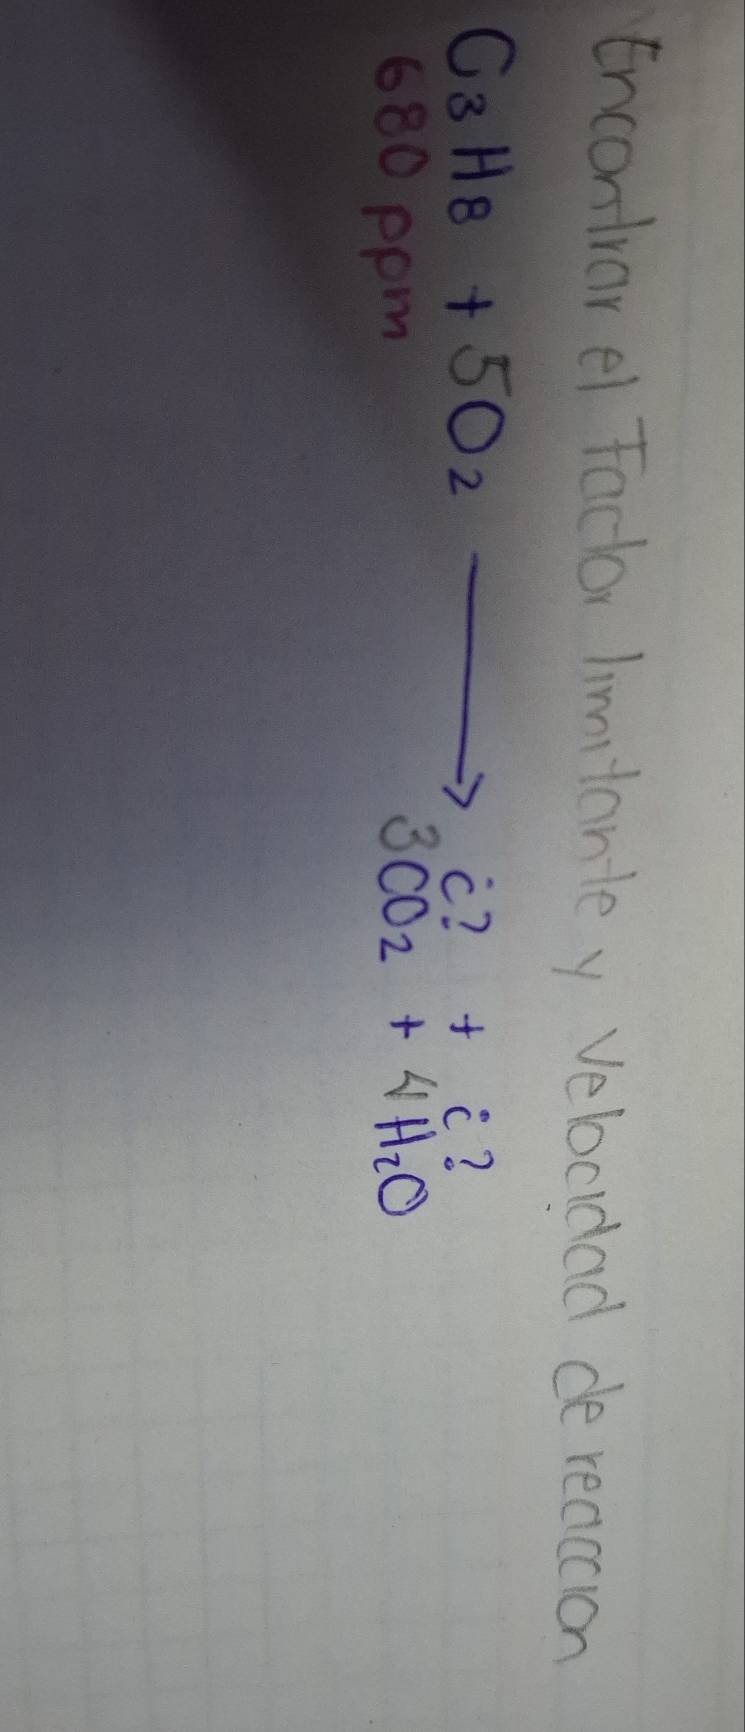 Encontrar el Factor limitante y velocidad de reaccion
C3H8 + 5O2 → ¿? + ¿?
680 ppm 3CO2 + 4H2O